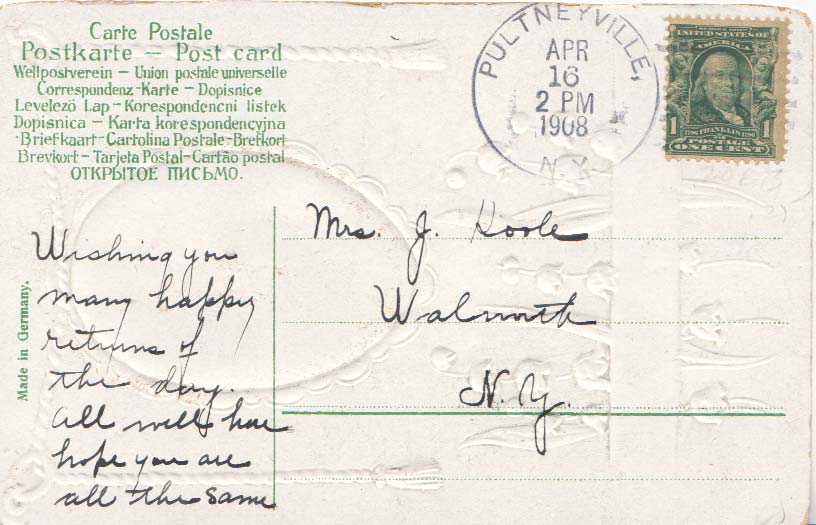 Carte Postale
Postkarte — Post card
Weltpostverein – Union postale universelle
Correspondenz-Karte – Dopisnice
Levelező Lap – Korespondencni listek
Dopisnica – Karta korespondencyjna
Briefkaart – Cartolina Postale – Brefkort
Brevkort – Tarjeta Postal – Cartão postal
ОТКРЫТОЕ ПИСЬМО.
PULTNEYVILLE,
APR
16
2 PM
1908
N.Y.
UNITED STATES OF
AMERICA
1 FRANKLIN 1
POSTAGE
ONE CENT
Mrs. J. Hoole
Walworth
N.Y.
Made in Germany.
Wishing you
many happy
returns of
the day.
all well here
hope you are
all the same